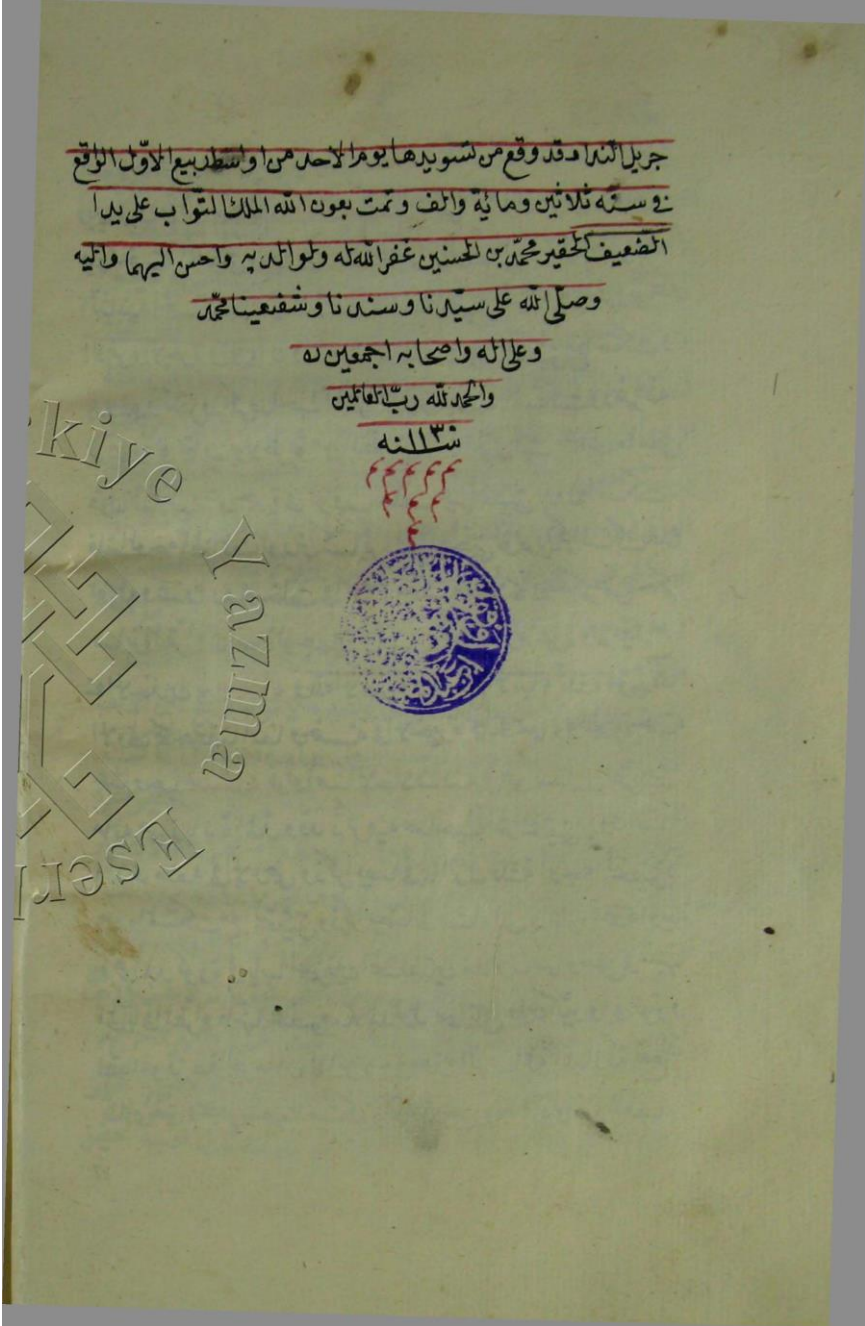 جزيل الندا وقد وقع من تسويدها يوم الاحد من اواسط ربيع الاول الواقع
في سنة ثلاثين ومائة والف وتمت بعون الله الملك التواب على يد ا
الضعيف الحقير محمد بن الحسنين غفر الله له ولوالديه واحسن اليهما واليه
وصلى الله على سيدنا وسندنا وشفيعينا محمد
وعلى اله واصحابه اجمعين
والحمد لله رب العالمين
سنه ١١٣٠
kiye
Yazma
Eserl